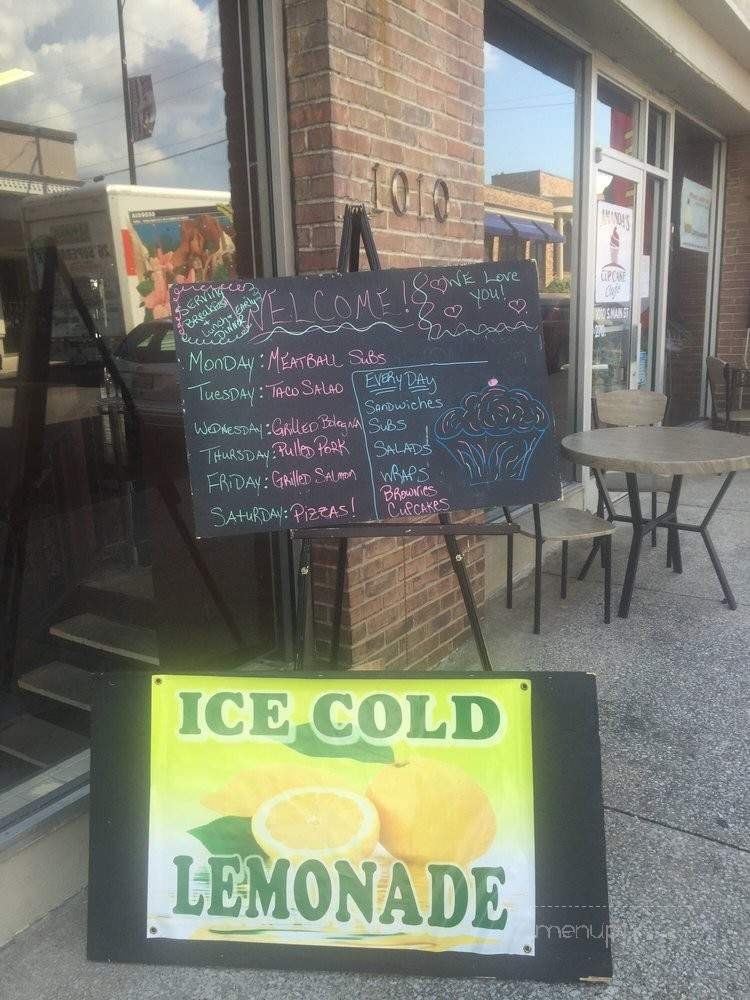 1010
SERVING
BREAKFAST
LUNCH +
EARLY
DINNER
WELCOME!
WE LOVE
YOU!
MONDAY: MEATBALL SUBS
TUESDAY: TACO SALAD
WEDNESDAY: GRILLED Bologna
THURSDAY: PULLED PORK
FRIDAY: GRILLED SALMON
SATURDAY: PIZZAS!
EVERY DAY
SANDWICHES
SUBS
SALADS!
WRAPS
BROWNIES
CUPCAKES
AMANDA'S
CUPCAKE
Cafe
1010 S MAIN ST
ICE COLD
LEMONADE
menupix